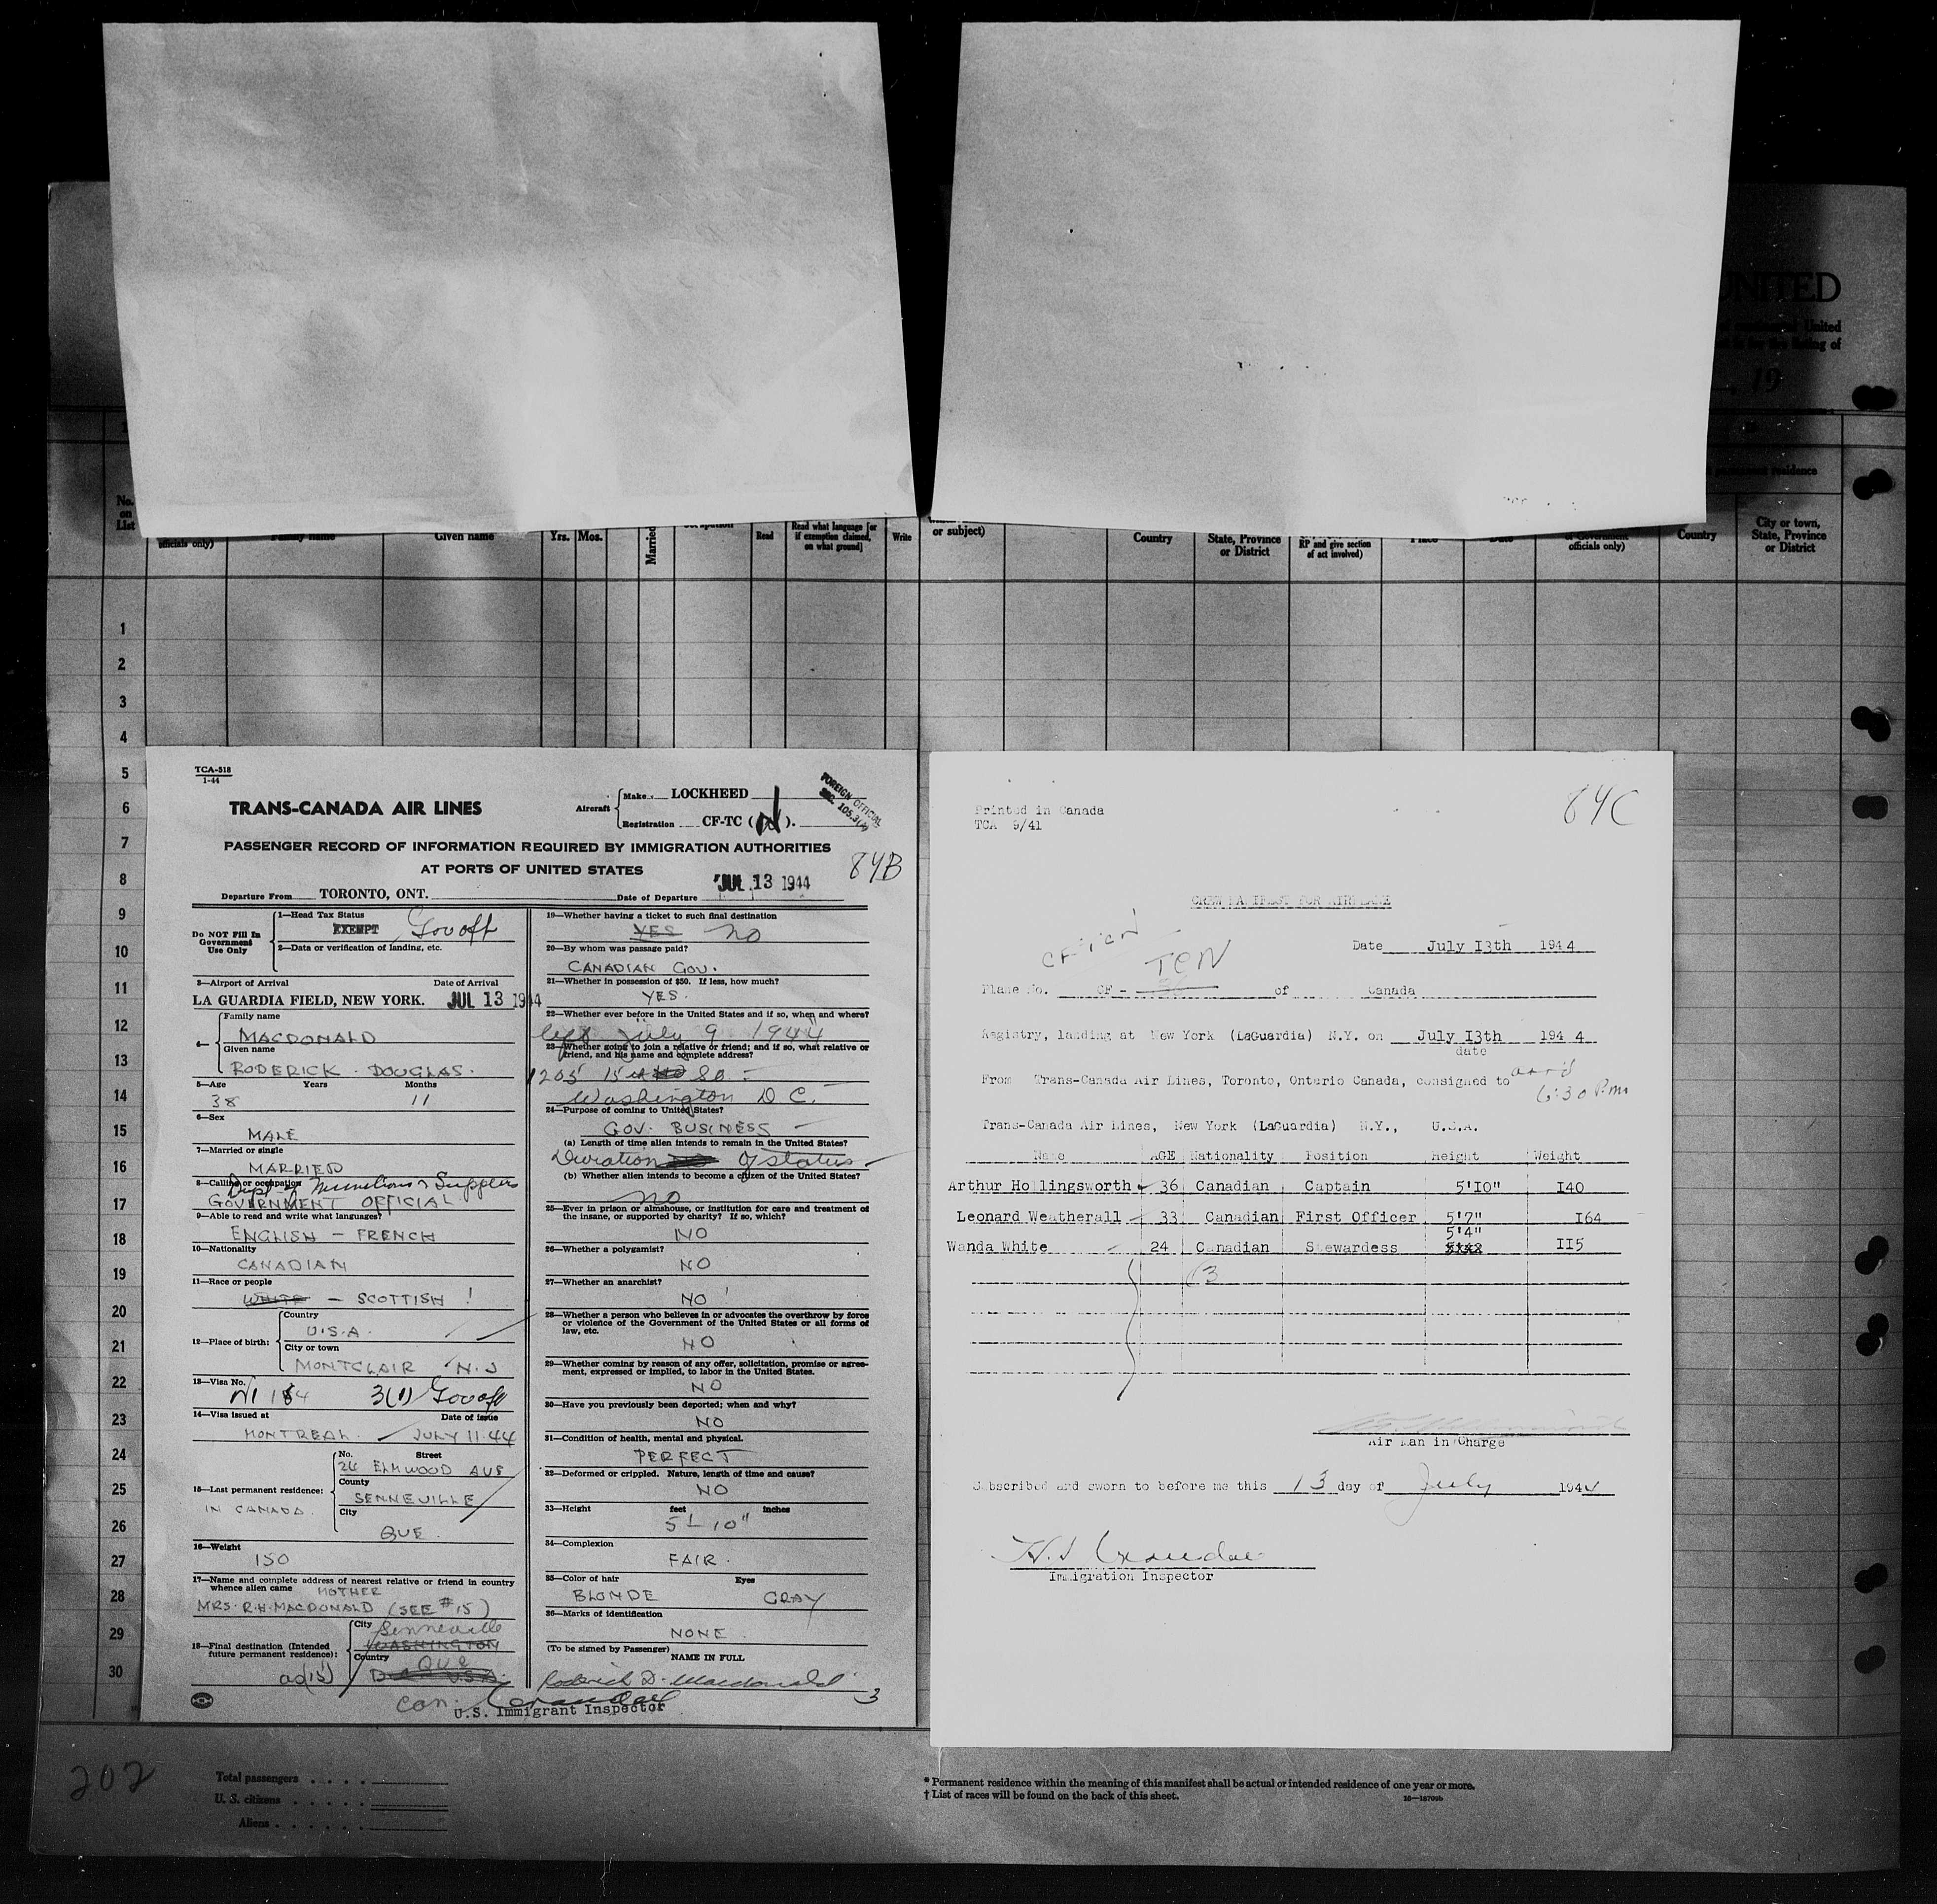 UNITED
United
listing of
, 19
No.
on
List
officials only)
Family name
Given name
Yrs.
Mos.
Married
Read
Read what language [or
if exemption claimed,
on what ground]
Write
or subject)
Country
State, Province
or District
RP and give section
of act involved)
Place
Date
officials only)
residence
Country
City or town,
State, Province
or District
1
2
3
4
5
6
7
8
9
10
11
12
13
14
15
16
17
18
19
20
21
22
23
24
25
26
27
28
29
30
TCA-518
1-44
TRANS-CANADA AIR LINES
Aircraft
Make LOCKHEED
Registration CF-TC (N).
FOREIGN OFFICIAL
SEC. 105.3(A)
PASSENGER RECORD OF INFORMATION REQUIRED BY IMMIGRATION AUTHORITIES
AT PORTS OF UNITED STATES
84B
Departure From TORONTO, ONT.
Date of Departure JUL 13 1944
Do NOT Fill In
Government
Use Only
1—Head Tax Status
EXEMPT Gov off
2—Data or verification of landing, etc.
3—Airport of Arrival Date of Arrival
LA GUARDIA FIELD, NEW YORK. JUL 13 1944
4—
Family name
MACDONALD
Given name
RODERICK DOUGLAS.
5—Age Years Months
38 11
6—Sex
MALE
7—Married or single
MARRIED
8—Calling or occupation Dept of Munitions & Supplies
GOVERNMENT OFFICIAL
9—Able to read and write what languages?
ENGLISH — FRENCH
10—Nationality
CANADIAN
11—Race or people
WHITE — SCOTTISH !
12—Place of birth:
Country
U.S.A.
City or town
MONTCLAIR N.J
13—Visa No.
3(1) Gov off
14—Visa issued at Date of issue
MONTREAL. JULY 11.44
15—Last permanent residence:
IN CANADA.
No. Street
26 ELMWOOD AVE
County
SENNEVILLE
City
QUE.
16—Weight
150
17—Name and complete address of nearest relative or friend in country
whence alien came MOTHER
MRS. R.H. MACDONALD (SEE #15)
18—Final destination (Intended
future permanent residence):
City Senneville
WASHINGTON
Country Que
D.C. U.S.A.
as (15)
Can.
19—Whether having a ticket to such final destination
YES no
20—By whom was passage paid?
CANADIAN GOV.
21—Whether in possession of $50. If less, how much?
YES.
22—Whether ever before in the United States and if so, when and where?
left July 9 1944
23—Whether going to join a relative or friend; and if so, what relative or
friend, and his name and complete address?
1205 15th So
Washington D C.
24—Purpose of coming to United States?
GOV. BUSINESS
(a) Length of time alien intends to remain in the United States?
Duration of status
(b) Whether alien intends to become a citizen of the United States?
no
25—Ever in prison or almshouse, or institution for care and treatment of
the insane, or supported by charity? If so, which?
NO
26—Whether a polygamist?
NO
27—Whether an anarchist?
NO
28—Whether a person who believes in or advocates the overthrow by force
or violence of the Government of the United States or all forms of
law, etc.
NO
29—Whether coming by reason of any offer, solicitation, promise or agree-
ment, expressed or implied, to labor in the United States.
NO
30—Have you previously been deported; when and why?
NO
31—Condition of health, mental and physical.
PERFECT
32—Deformed or crippled. Nature, length of time and cause?
NO
33—Height feet inches
5' 10"
34—Complexion
FAIR.
35—Color of hair Eyes
BLONDE GRAY
36—Marks of identification
NONE.
(To be signed by Passenger) NAME IN FULL
Roderick D. Macdonald
3
Crandall
U.S. Immigrant Inspector
Printed in Canada
TCA 9/41
84C
CREW MANIFEST FOR AIRPLANE
Date July I3th 1944
CF-TCN
TCN
Plane No. CF - of Canada
Registry, landing at New York (LaGuardia) N.Y. on July I3th 1944
date
From Trans-Canada Air Lines, Toronto, Ontario Canada, consigned to
arr'd
6:30 P.m
Trans-Canada Air Lines, New York (LaGuardia) N.Y., U.S.A.
Name AGE Nationality Position Height Weight
Arthur Hollingsworth 36 Canadian Captain 5'IO" I40
Leonard Weatherall 33 Canadian First Officer 5'7" I64
5'4"
Wanda White 24 Canadian Stewardess II5
(3
Air Man in Charge
Subscribed and sworn to before me this 13 day of July 1944
H.J Crandall
Immigration Inspector
202
Total passengers
U. S. citizens
Aliens
* Permanent residence within the meaning of this manifest shall be actual or intended residence of one year or more.
† List of races will be found on the back of this sheet.
16—18709b